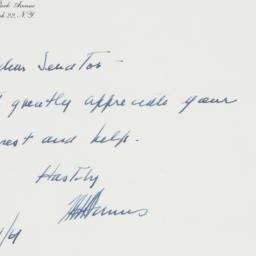 Park Avenue
k 22, N.Y.
dear Senator -
I greatly appreciate your
rest and help.
Hastily